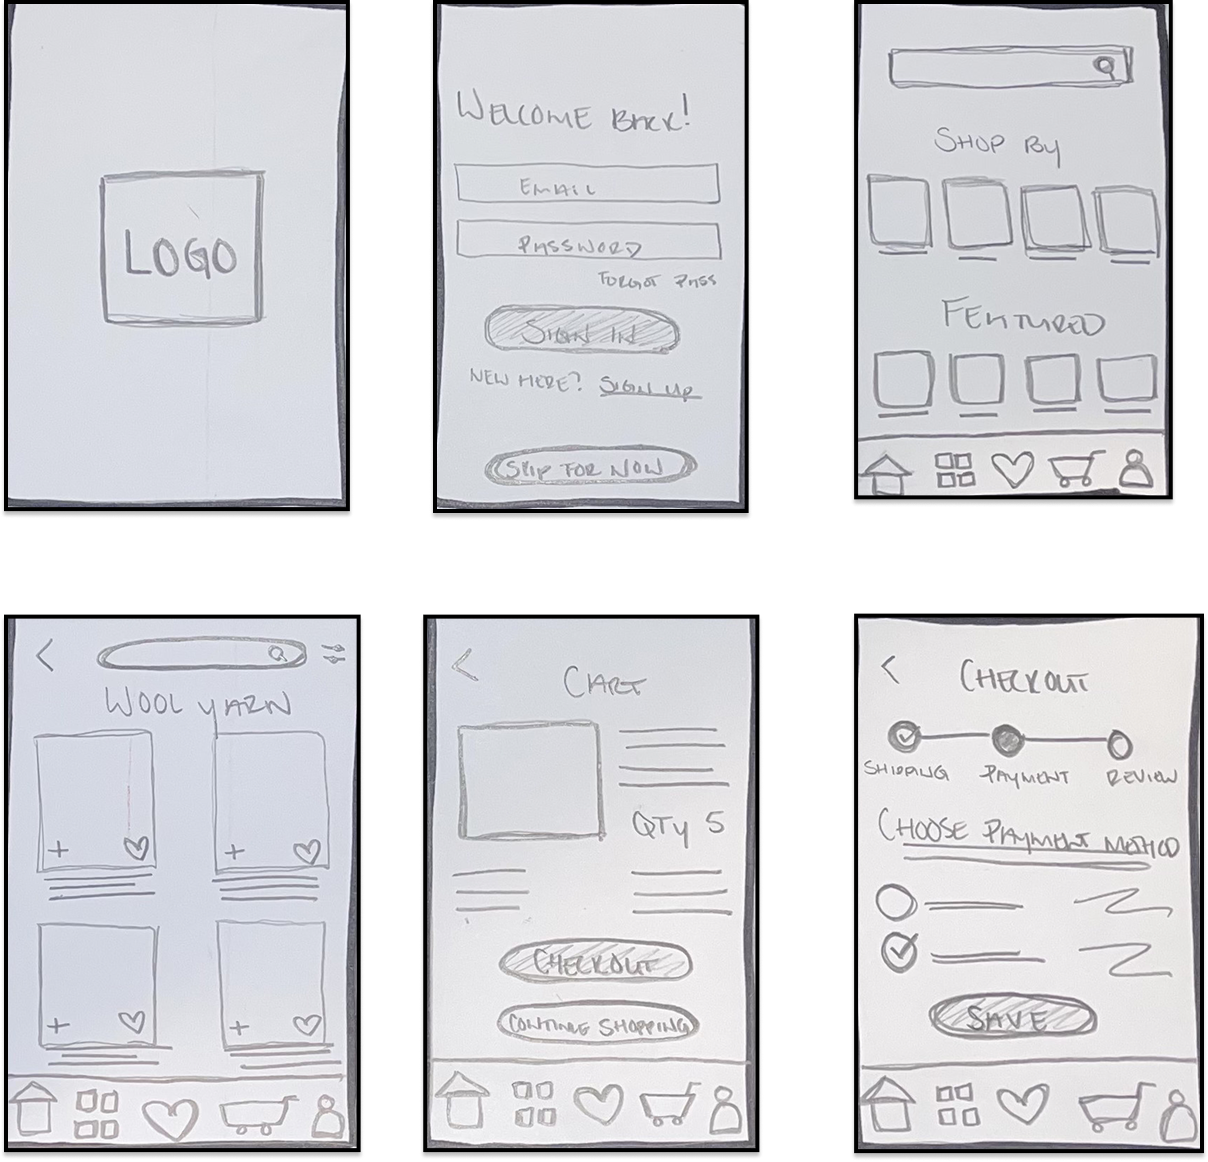 LOGO
WELCOME BACK!
EMAIL
PASSWORD
FORGOT PASS
SIGN IN
NEW HERE? SIGN UP
SKIP FOR NOW
SHOP BY
FEATURED
WOOL YARN
CART
QTY 5
CHECKOUT
CONTINUE SHOPPING
CHECKOUT
SHIPPING PAYMENT REVIEW
CHOOSE PAYMENT METHOD
SAVE